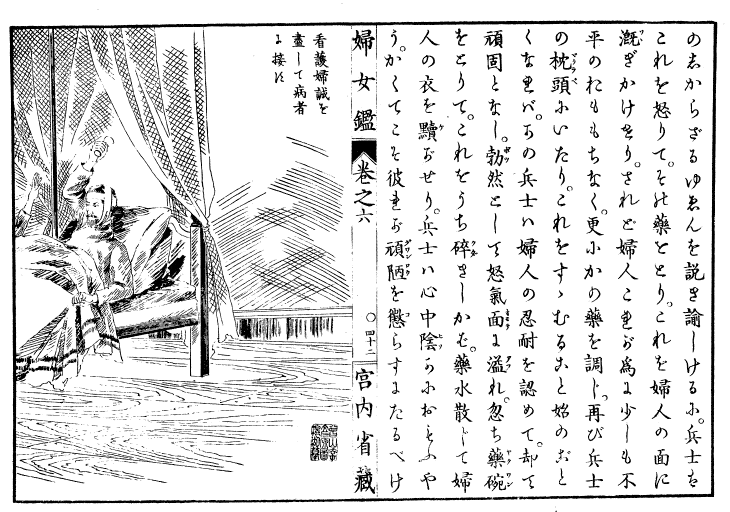 のしからざるゆゑんを説き諭しけるに。兵士は
これを怒りて。その藥をとり。これを婦人の面に
漑ぎかけたり。されど婦人これが爲に少しも不
平のおももちなく。更にかの藥を調じ。再び兵士
の枕頭にいたり。これをすゝむること始のごと
くなれば。かの兵士は婦人の忍耐を認めて。却て
頑固となし。勃然として怒氣面に溢れ。忽ち藥碗
をとりて。これをうち碎きしかば。藥水散じて婦
人の衣を黷がせり。兵士は心中陰かにおもふや
う。かくてこそ彼れが頑陋を懲らすにたるべけ
婦女鑑 卷之六 ○四十二 宮内省藏
看護婦誠を
盡して病者
に接す